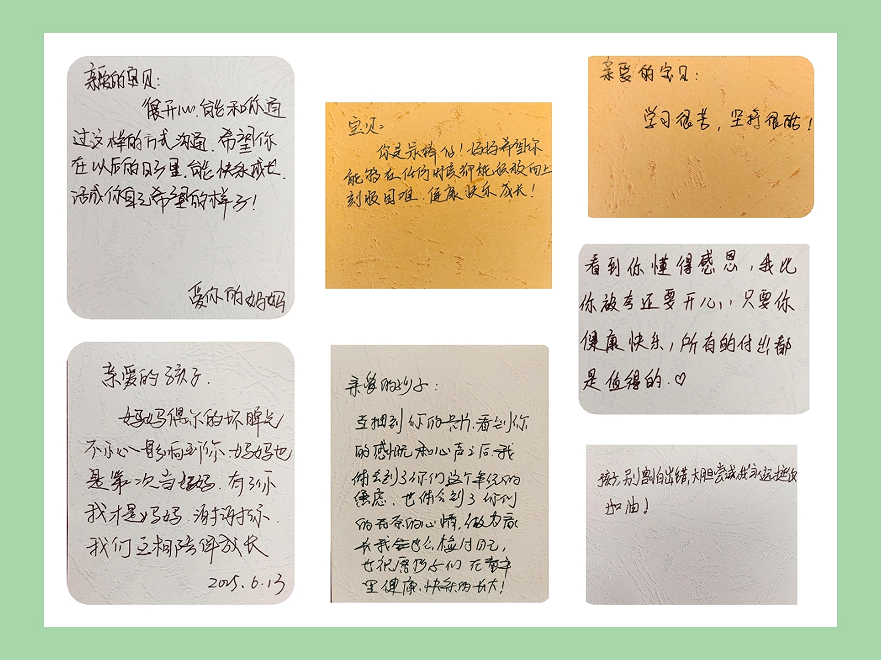 亲爱的宝贝:
很开心能和你通
过这样的方式沟通.希望你
在以后的日子里.能快乐成长.
活成你自己希望的样子!
爱你的妈妈
宝贝:
你是最棒的!妈妈希望你
能够在任何时候都能积极向上
克服困难.健康快乐成长!
亲爱的宝贝:
学习很苦,坚持很酷!
看到你懂得感恩,我比
你被夸还要开心,只要你
健康快乐,所有的付出都
是值得的.♡
亲爱的孩子.
妈妈偶尔的坏脾气
不小心影响到你.妈妈也
是第一次当妈妈.有了你
我才是妈妈.谢谢你.
我们互相陪伴成长
2025.6.13
亲爱的孩子:
当抽到你的卡片.看到你
的感慨和心声之后.我
体会到了你们这个年纪的
焦虑.也体会到了你们
的心情,做为家
长我
也祝愿孩子们在
里健康、快乐的长大!
孩子,别害怕出错,大胆尝试,我永远挺你
加油!